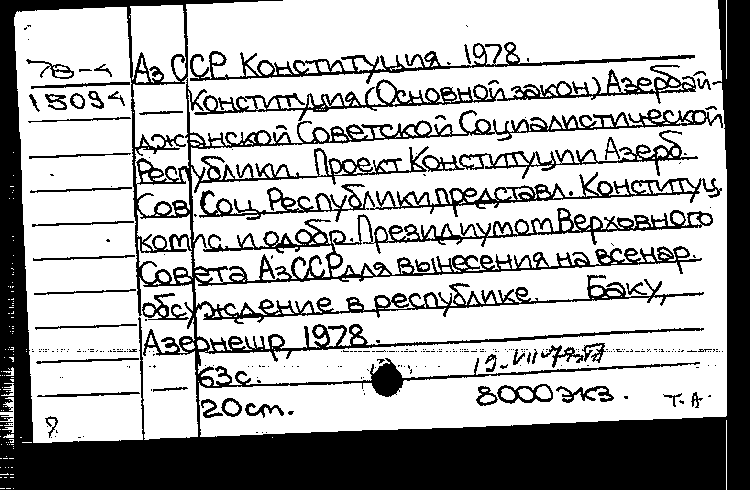 78-4 Аз ССР. Конституция. 1978.
15094 Конституция (Основной закон) Азербай-
джанской Советской Социалистической
Республики. Проект Конституции Азерб.
Сов. Соц. Республики, представл. Конституц.
комис. и одобр. Президиумом Верховного
Совета АзССР для вынесения на всенар.
обсуждение в республике. Баку,
Азернешр, 1978.
63с.
20см. 8000 экз. Т.А.